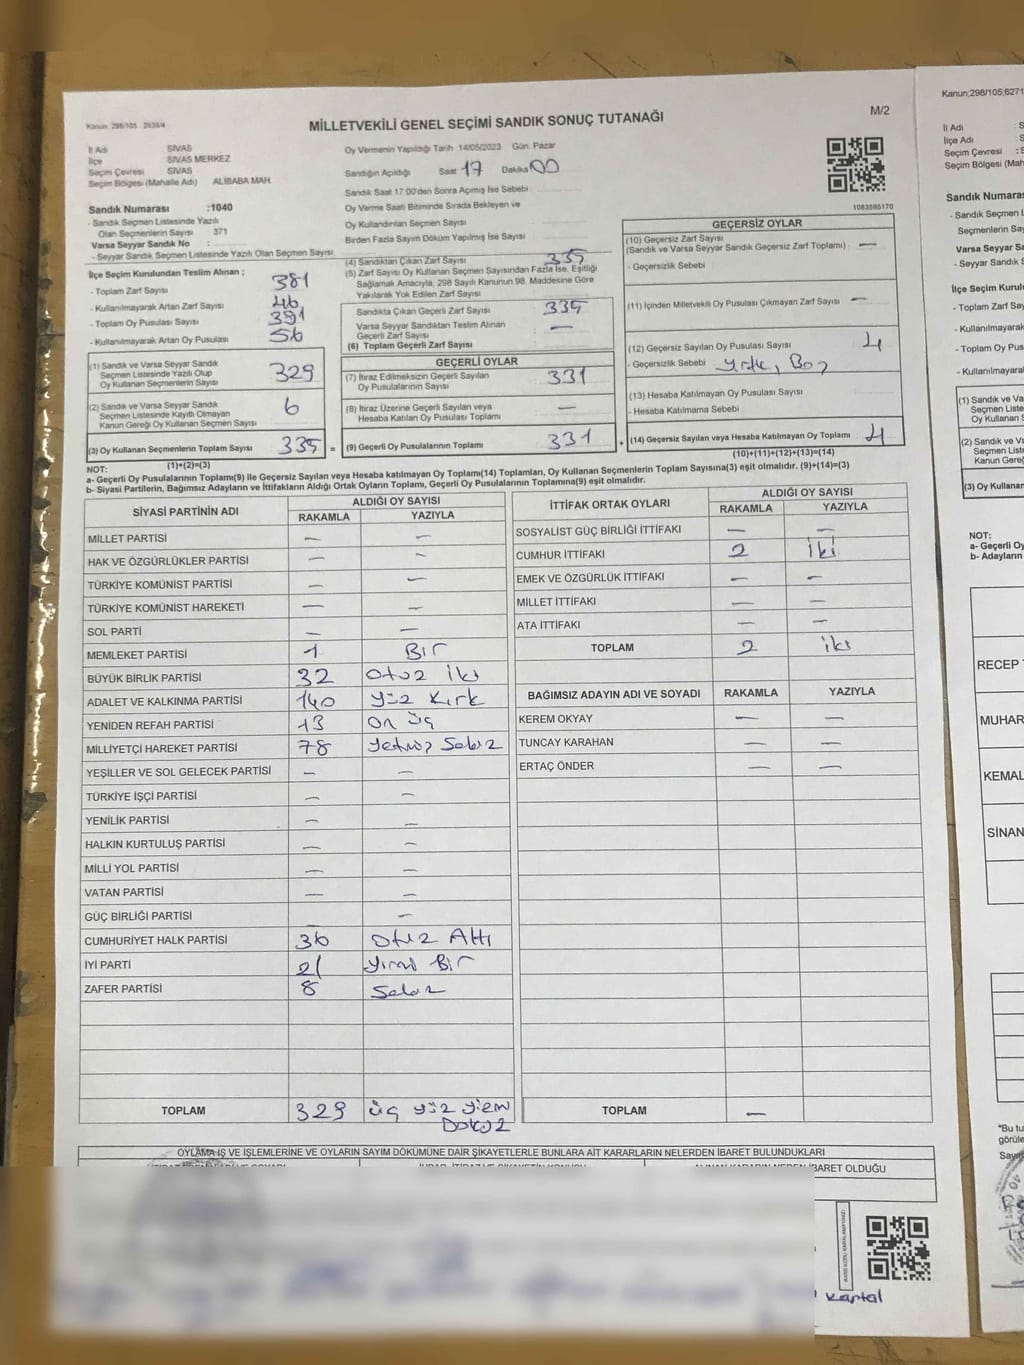 Kanun: 298/105 2839/4
M/2
MİLLETVEKİLİ GENEL SEÇİMİ SANDIK SONUÇ TUTANAĞI
İl Adı SİVAS
İlçe SİVAS MERKEZ
Seçim Çevresi SİVAS
Seçim Bölgesi (Mahalle Adı) ALİBABA MAH.
Sandık Numarası :1040
- Sandık Seçmen Listesinde Yazılı
Olan Seçmenlerin Sayısı 371
Varsa Seyyar Sandık No :
- Seyyar Sandık Seçmen Listesinde Yazılı Olan Seçmen Sayısı
İlçe Seçim Kurulundan Teslim Alınan ;
- Toplam Zarf Sayısı 381
- Kullanılmayarak Artan Zarf Sayısı 46
- Toplam Oy Pusulası Sayısı 391
- Kullanılmayarak Artan Oy Pusulası 56
(1) Sandık ve Varsa Seyyar Sandık
Seçmen Listesinde Yazılı Olup
Oy Kullanan Seçmenlerin Sayısı 329
(2) Sandık ve Varsa Seyyar Sandık
Seçmen Listesinde Kayıtlı Olmayan
Kanun Gereği Oy Kullanan Seçmen Sayısı 6
(3) Oy Kullanan Seçmenlerin Toplam Sayısı 335 =
(1)+(2)=(3)
Oy Vermenin Yapıldığı Tarih 14/05/2023 Gün: Pazar
Sandığın Açıldığı Saat 17 Dakika 00
Sandık Saat 17.00'den Sonra Açımış İse Sebebi
Oy Verme Saati Bitiminde Sırada Bekleyen ve
Oy Kullandırılan Seçmen Sayısı
Birden Fazla Sayım Döküm Yapılmış İse Sayısı
(4) Sandıktan Çıkan Zarf Sayısı 335
(5) Zarf Sayısı Oy Kullanan Seçmen Sayısından Fazla İse, Eşitliği
Sağlamak Amacıyla, 298 Sayılı Kanunun 98. Maddesine Göre
Yakılarak Yok Edilen Zarf Sayısı
Sandıkta Çıkan Geçerli Zarf Sayısı 335
Varsa Seyyar Sandıktan Teslim Alınan
Geçerli Zarf Sayısı —
(6) Toplam Geçerli Zarf Sayısı
GEÇERLİ OYLAR
(7) İtiraz Edilmeksizin Geçerli Sayılan
Oy Pusulalarının Sayısı 331
(8) İtiraz Üzerine Geçerli Sayılan veya
Hesaba Katılan Oy Pusulası Toplamı —
(9) Geçerli Oy Pusulalarının Toplamı 331 +
1083595170
GEÇERSİZ OYLAR
(10) Geçersiz Zarf Sayısı
(Sandık ve Varsa Seyyar Sandık Geçersiz Zarf Toplamı) —
- Geçersizlik Sebebi
(11) İçinden Milletvekili Oy Pusulası Çıkmayan Zarf Sayısı —
(12) Geçersiz Sayılan Oy Pusulası Sayısı 4
- Geçersizlik Sebebi Yırtık, Boş
(13) Hesaba Katılmayan Oy Pusulası Sayısı
- Hesaba Katılmama Sebebi
(14) Geçersiz Sayılan veya Hesaba Katılmayan Oy Toplamı 4
(10)+(11)+(12)+(13)=(14)
NOT:
a- Geçerli Oy Pusulalarının Toplamı(9) ile Geçersiz Sayılan veya Hesaba katılmayan Oy Toplamı(14) Toplamları, Oy Kullanan Seçmenlerin Toplam Sayısına(3) eşit olmalıdır. (9)+(14)=(3)
b- Siyasi Partilerin, Bağımsız Adayların ve İttifakların Aldığı Ortak Oyların Toplamı, Geçerli Oy Pusulalarının Toplamına(9) eşit olmalıdır.
SİYASİ PARTİNİN ADI ALDIĞI OY SAYISI
RAKAMLA YAZIYLA
MİLLET PARTİSİ — —
HAK VE ÖZGÜRLÜKLER PARTİSİ — —
TÜRKİYE KOMÜNİST PARTİSİ — —
TÜRKİYE KOMÜNİST HAREKETİ — —
SOL PARTİ — —
MEMLEKET PARTİSİ 1 Bir
BÜYÜK BİRLİK PARTİSİ 32 Otuz İki
ADALET VE KALKINMA PARTİSİ 140 Yüz Kırk
YENİDEN REFAH PARTİSİ 13 On üç
MİLLİYETÇİ HAREKET PARTİSİ 78 Yetmiş Sekiz
YEŞİLLER VE SOL GELECEK PARTİSİ — —
TÜRKİYE İŞÇİ PARTİSİ — —
YENİLİK PARTİSİ — —
HALKIN KURTULUŞ PARTİSİ — —
MİLLİ YOL PARTİSİ — —
VATAN PARTİSİ — —
GÜÇ BİRLİĞİ PARTİSİ —
CUMHURİYET HALK PARTİSİ 36 Otuz Altı
İYİ PARTİ 21 Yirmi Bir
ZAFER PARTİSİ 8 Sekiz
TOPLAM 329 üç yüz yirmi
Dokuz
İTTİFAK ORTAK OYLARI ALDIĞI OY SAYISI
RAKAMLA YAZIYLA
SOSYALİST GÜÇ BİRLİĞİ İTTİFAKI — —
CUMHUR İTTİFAKI 2 İki
EMEK VE ÖZGÜRLÜK İTTİFAKI — —
MİLLET İTTİFAKI — —
ATA İTTİFAKI — —
TOPLAM 2 iki
BAĞIMSIZ ADAYIN ADI VE SOYADI RAKAMLA YAZIYLA
KEREM OKYAY — —
TUNCAY KARAHAN — —
ERTAÇ ÖNDER — —
TOPLAM —
OYLAMA İŞ VE İŞLEMLERİNE VE OYLARIN SAYIM DÖKÜMÜNE DAİR ŞİKAYETLERLE BUNLARA AİT KARARLARIN NELERDEN İBARET BULUNDUKLARI
İBARET OLDUĞU
Kartal
Kanun;298/105;6271
İl Adı
İlçe Adı
Seçim Çevresi
Seçim Bölgesi (Mah
Sandık Numarası
- Sandık Seçmen L
Seçmenlerin Say
Varsa Seyyar San
- Seyyar Sandık Se
İlçe Seçim Kurulu
- Toplam Zarf Say
- Kullanılmayarak
- Toplam Oy Pus
- Kullanılmayarak
(1) Sandık ve Va
Seçmen Liste
Oy Kullanan
(2) Sandık ve Va
Seçmen List
Kanun Gereğ
(3) Oy Kullanan
NOT:
a- Geçerli Oy
b- Adayların
RECEP
MUHAR
KEMAL
SİNAN
*Bu tu
görüle
Say